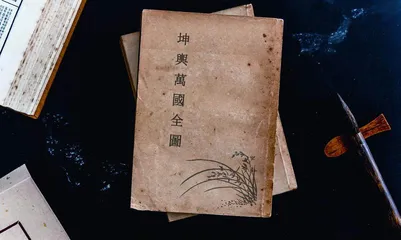 坤輿萬國全圖